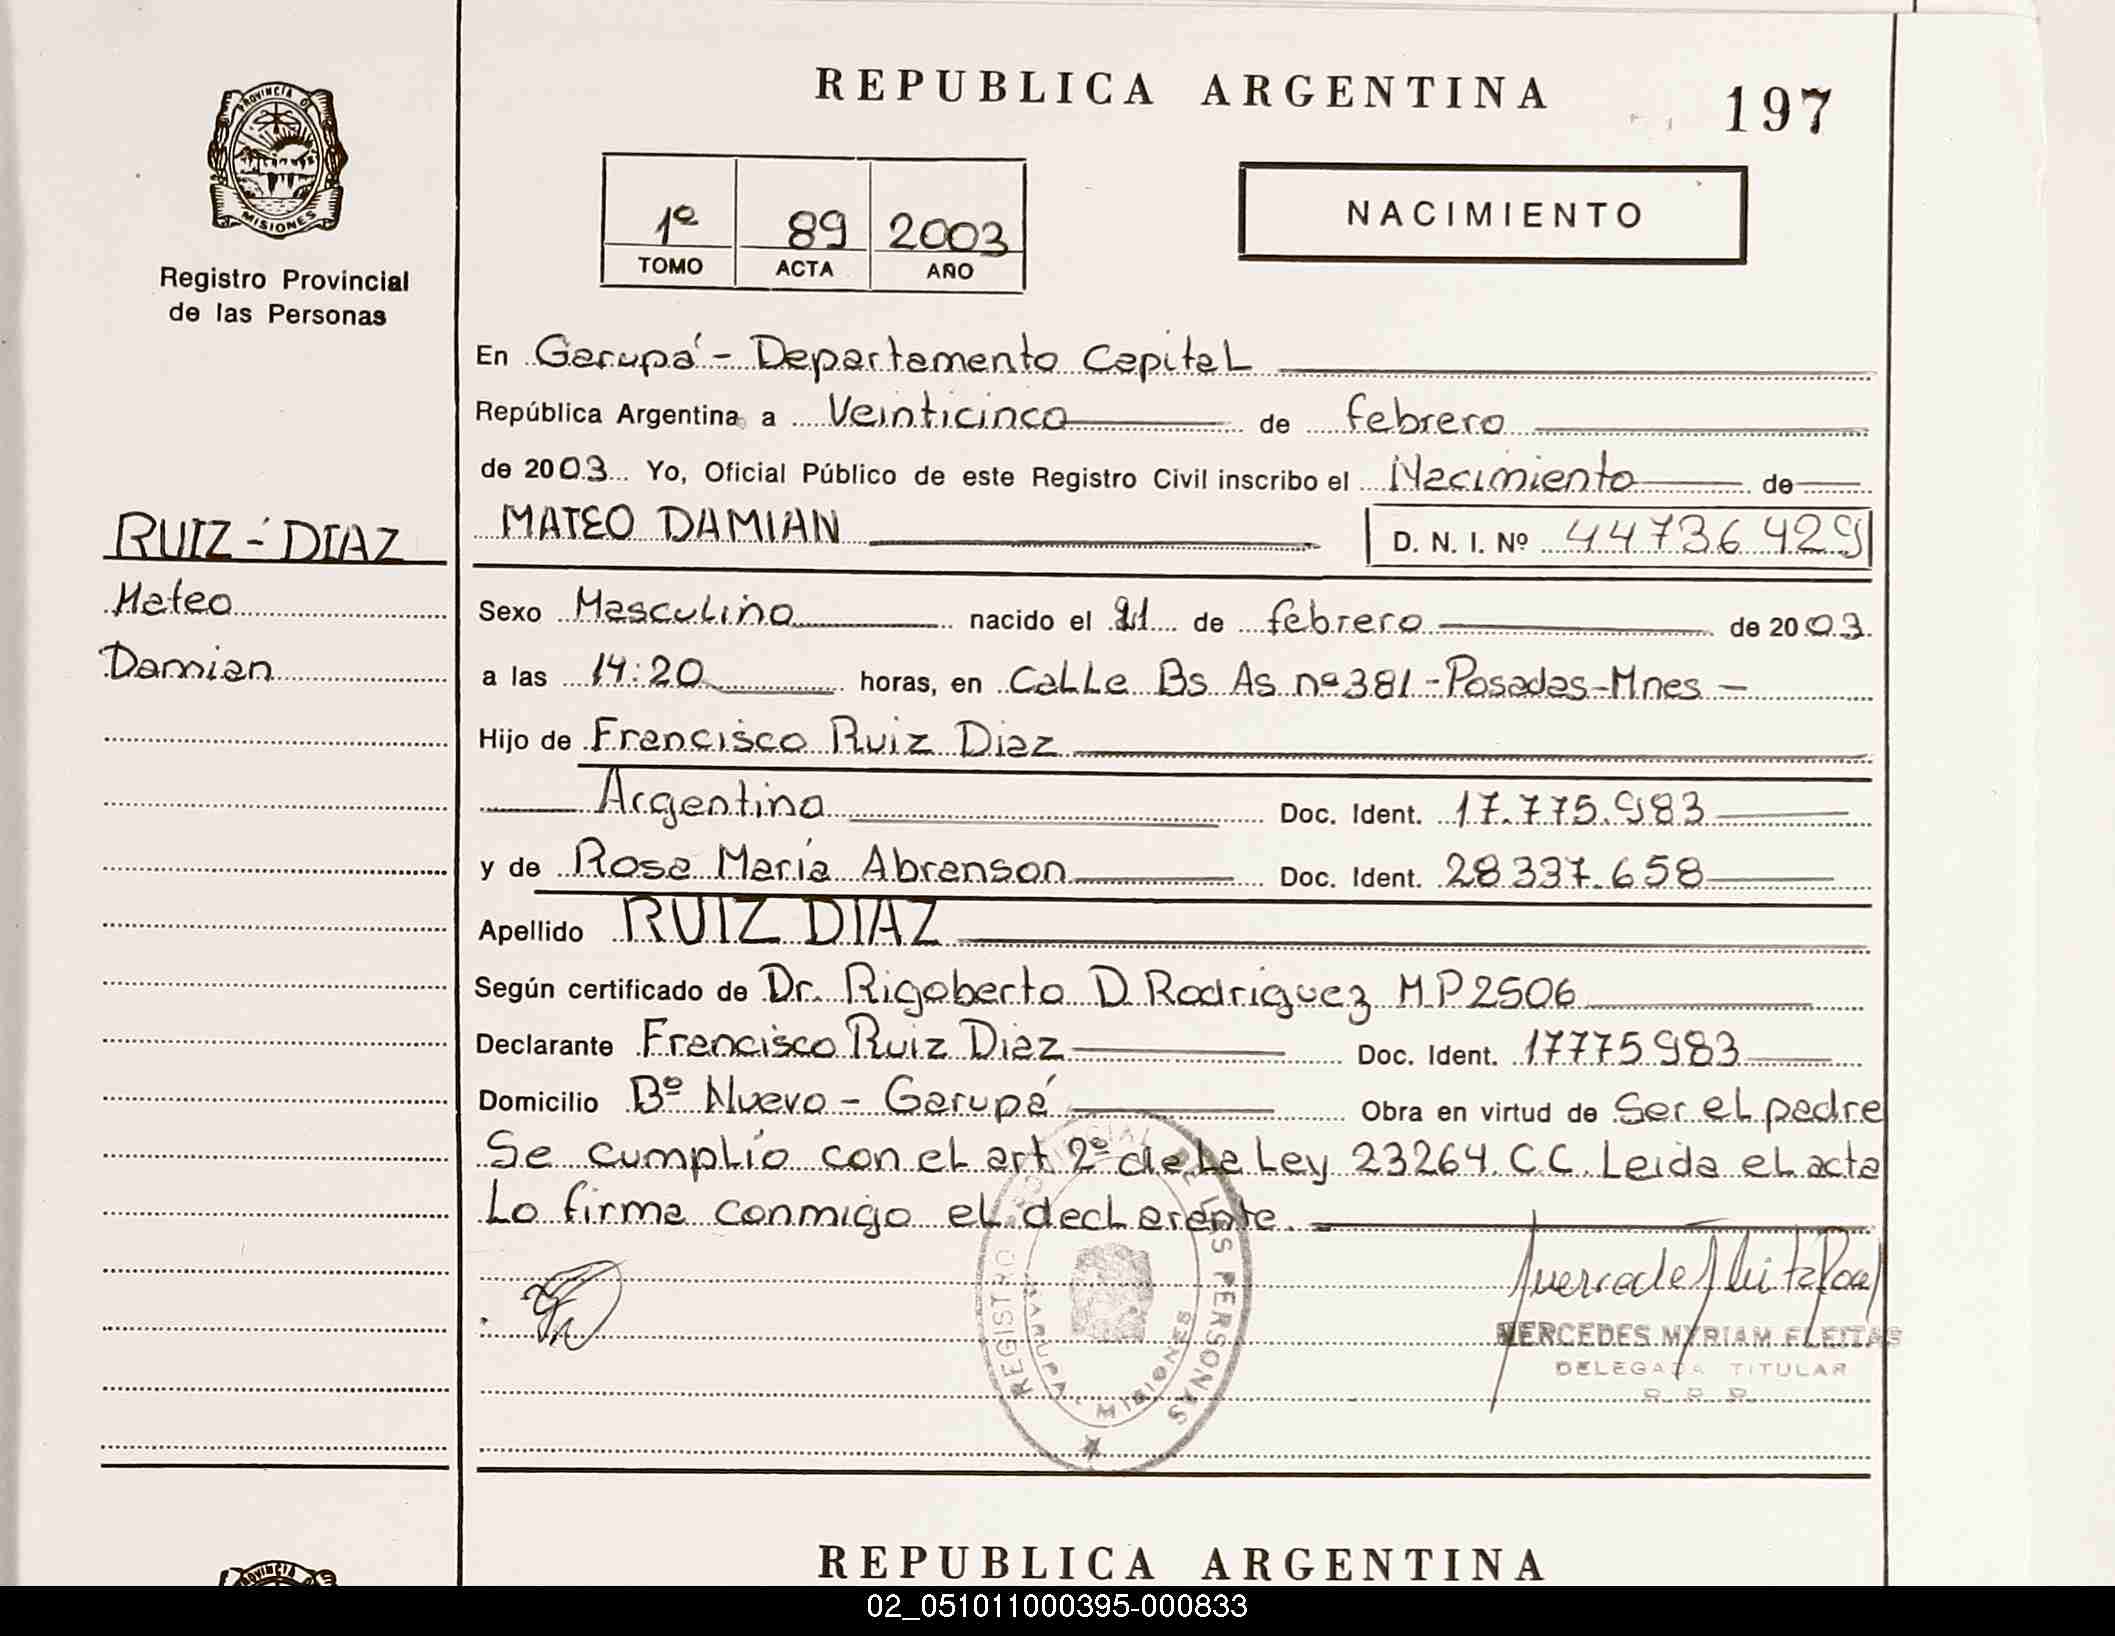 REPUBLICA ARGENTINA
197
PROVINCIA D
MISIONES
Registro Provincial
de las Personas
1º 89 2003
TOMO ACTA AÑO
NACIMIENTO
En Garupá - Departamento Capital
República Argentina a Veinticinco de febrero
de 2003 Yo, Oficial Público de este Registro Civil inscribo el Nacimiento de
RUIZ - DIAZ
Mateo
Damian
MATEO DAMIAN D. N. I. Nº 44736429
Sexo Masculino nacido el 21 de febrero de 2003
a las 14:20 horas, en Calle Bs As nº 381 - Posadas - Mnes -
Hijo de Francisco Ruiz Diaz
Argentina Doc. Ident. 17.775.983
y de Rosa María Abranson Doc. Ident. 28337.658
Apellido RUIZ DIAZ
Según certificado de Dr. Rigoberto D Rodriguez M P 2506
Declarante Francisco Ruiz Diaz Doc. Ident. 17775983
Domicilio Bº Nuevo - Garupá Obra en virtud de Ser el padre
Se cumplio con el art 2º de la Ley 23264 C.C. Leida el acta
Lo firma conmigo el declarante.
REGISTRO PROVINCIAL DE LAS PERSONAS
GARUPA - MISIONES
MERCEDES MYRIAM ELEITAS
DELEGADA TITULAR
R. P. P.
REPUBLICA ARGENTINA
02_051011000395-000833